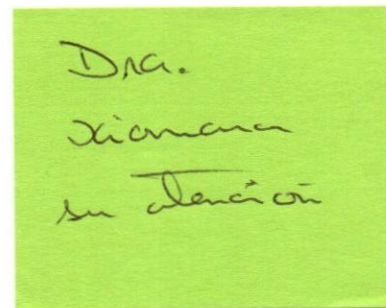 Dra.
Xiomara
su atención